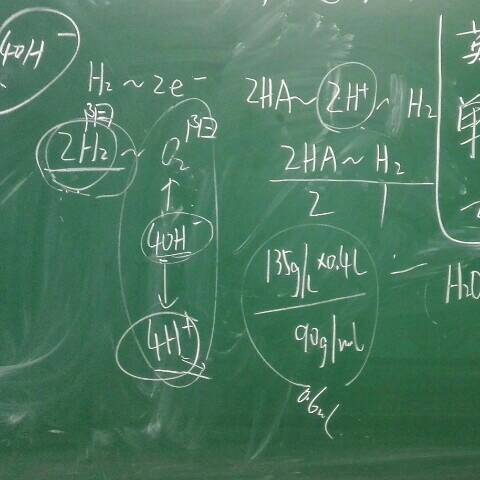 4OH⁻
H₂ ~ 2e⁻
阴
2H₂ ~ O₂ 阳
↑
4OH⁻
↓
4H⁺
2HA ~ 2H⁺ ~ H₂
2HA ~ H₂
2 1
135g/L × 0.4L
90g/mol
0.6mol
H₂O
英
单